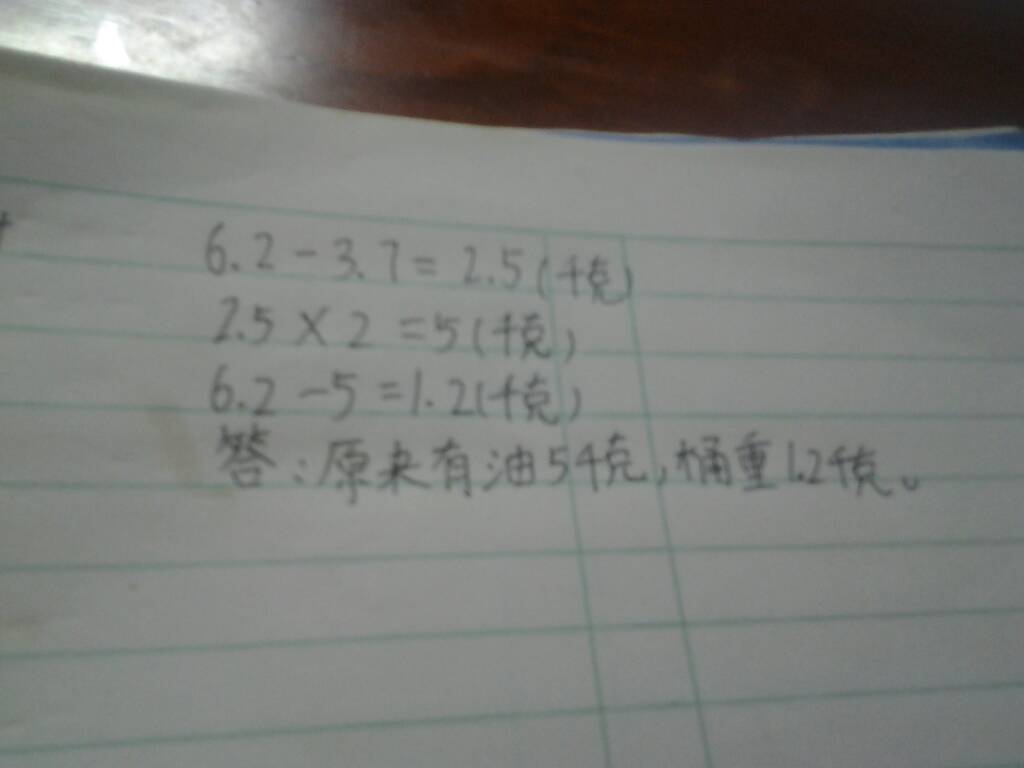 6.2-3.7=2.5(千克)
2.5×2=5(千克)
6.2-5=1.2(千克)
答:原来有油5千克,桶重1.2千克。